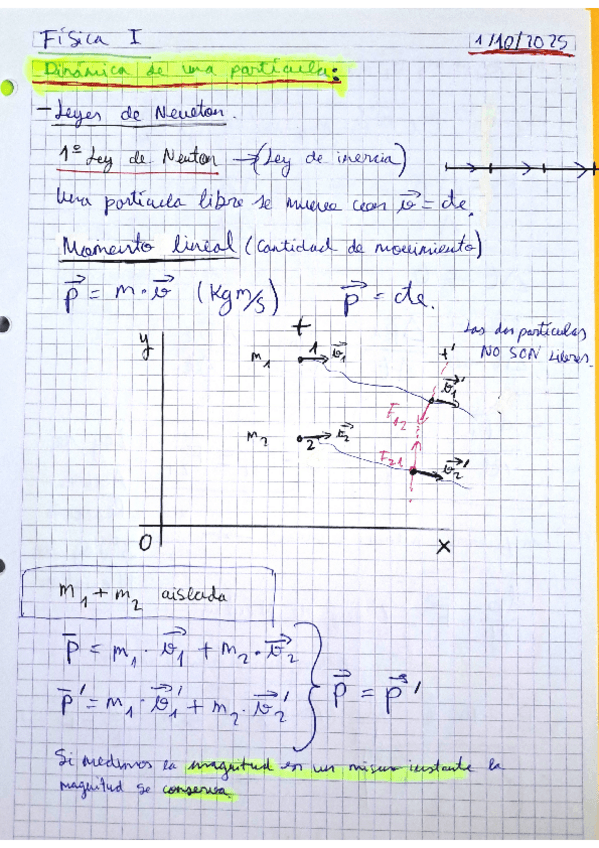 Física I
1/10/2025
Dinámica de una partícula:
- Leyes de Newton.
1º Ley de Newton → (Ley de inercia)
Una partícula libre se mueve con v⃗ = cte.
Momento lineal (Cantidad de movimiento)
p⃗ = m · v⃗ (Kg m/s) p⃗ = cte.
Las dos partículas
NO SON LIBRES.
y
t
t'
m₁ 1 v⃗₁
v⃗₁'
F₁₂
m₂ 2 v⃗₂
F₂₁
v⃗₂'
O
x
m₁ + m₂ aislada
p̄ = m₁ · v⃗₁ + m₂ · v⃗₂
p̄' = m₁ · v⃗₁' + m₂ · v⃗₂'
p⃗ = p⃗'
Si medimos la magnitud en un mismo instante la
magnitud se conserva.